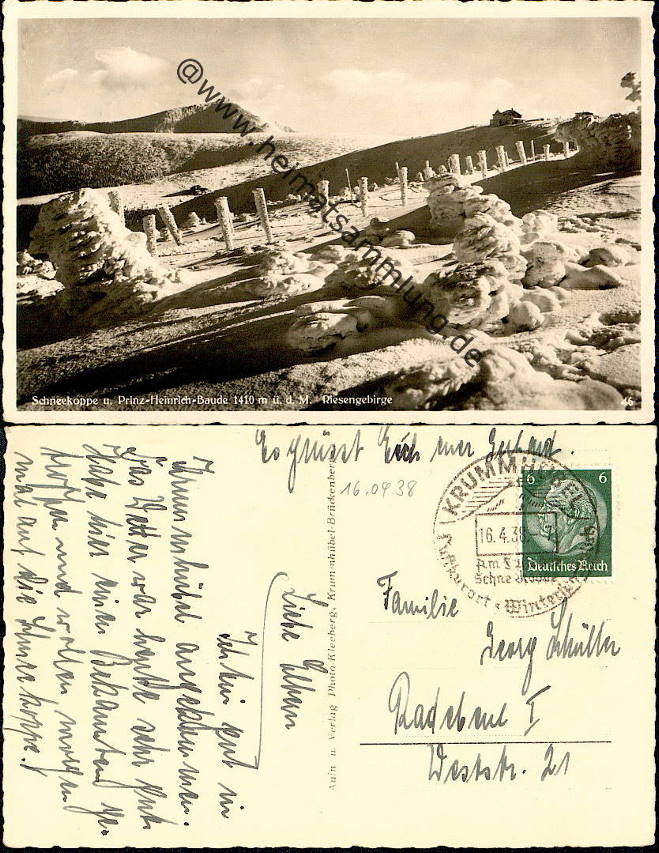 @www.heimatsammlung.de
Schneekoppe u. Prinz-Heinrich-Baude 1410 m ü. d. M. Riesengebirge
46
Es grüsst Euch euer Gerhard.
16.04.38
KRUMMHÜBEL
16.4.38
Schneekoppe
Luftkurort
6 6
Deutsches Reich
Familie
Georg Schüller
Radebeul I
Weststr. 21
Aufn. u. Verlag Photo-Kleeberg, Krummhübel-Brückenberg
Liebe Eltern
Ich bin gut in
Krummhübel angekommen.
Das Wetter war heute sehr gut.
Habe hier einen Bekannten ge-
troffen und wollen morgen
mal auf die Schneekoppe.